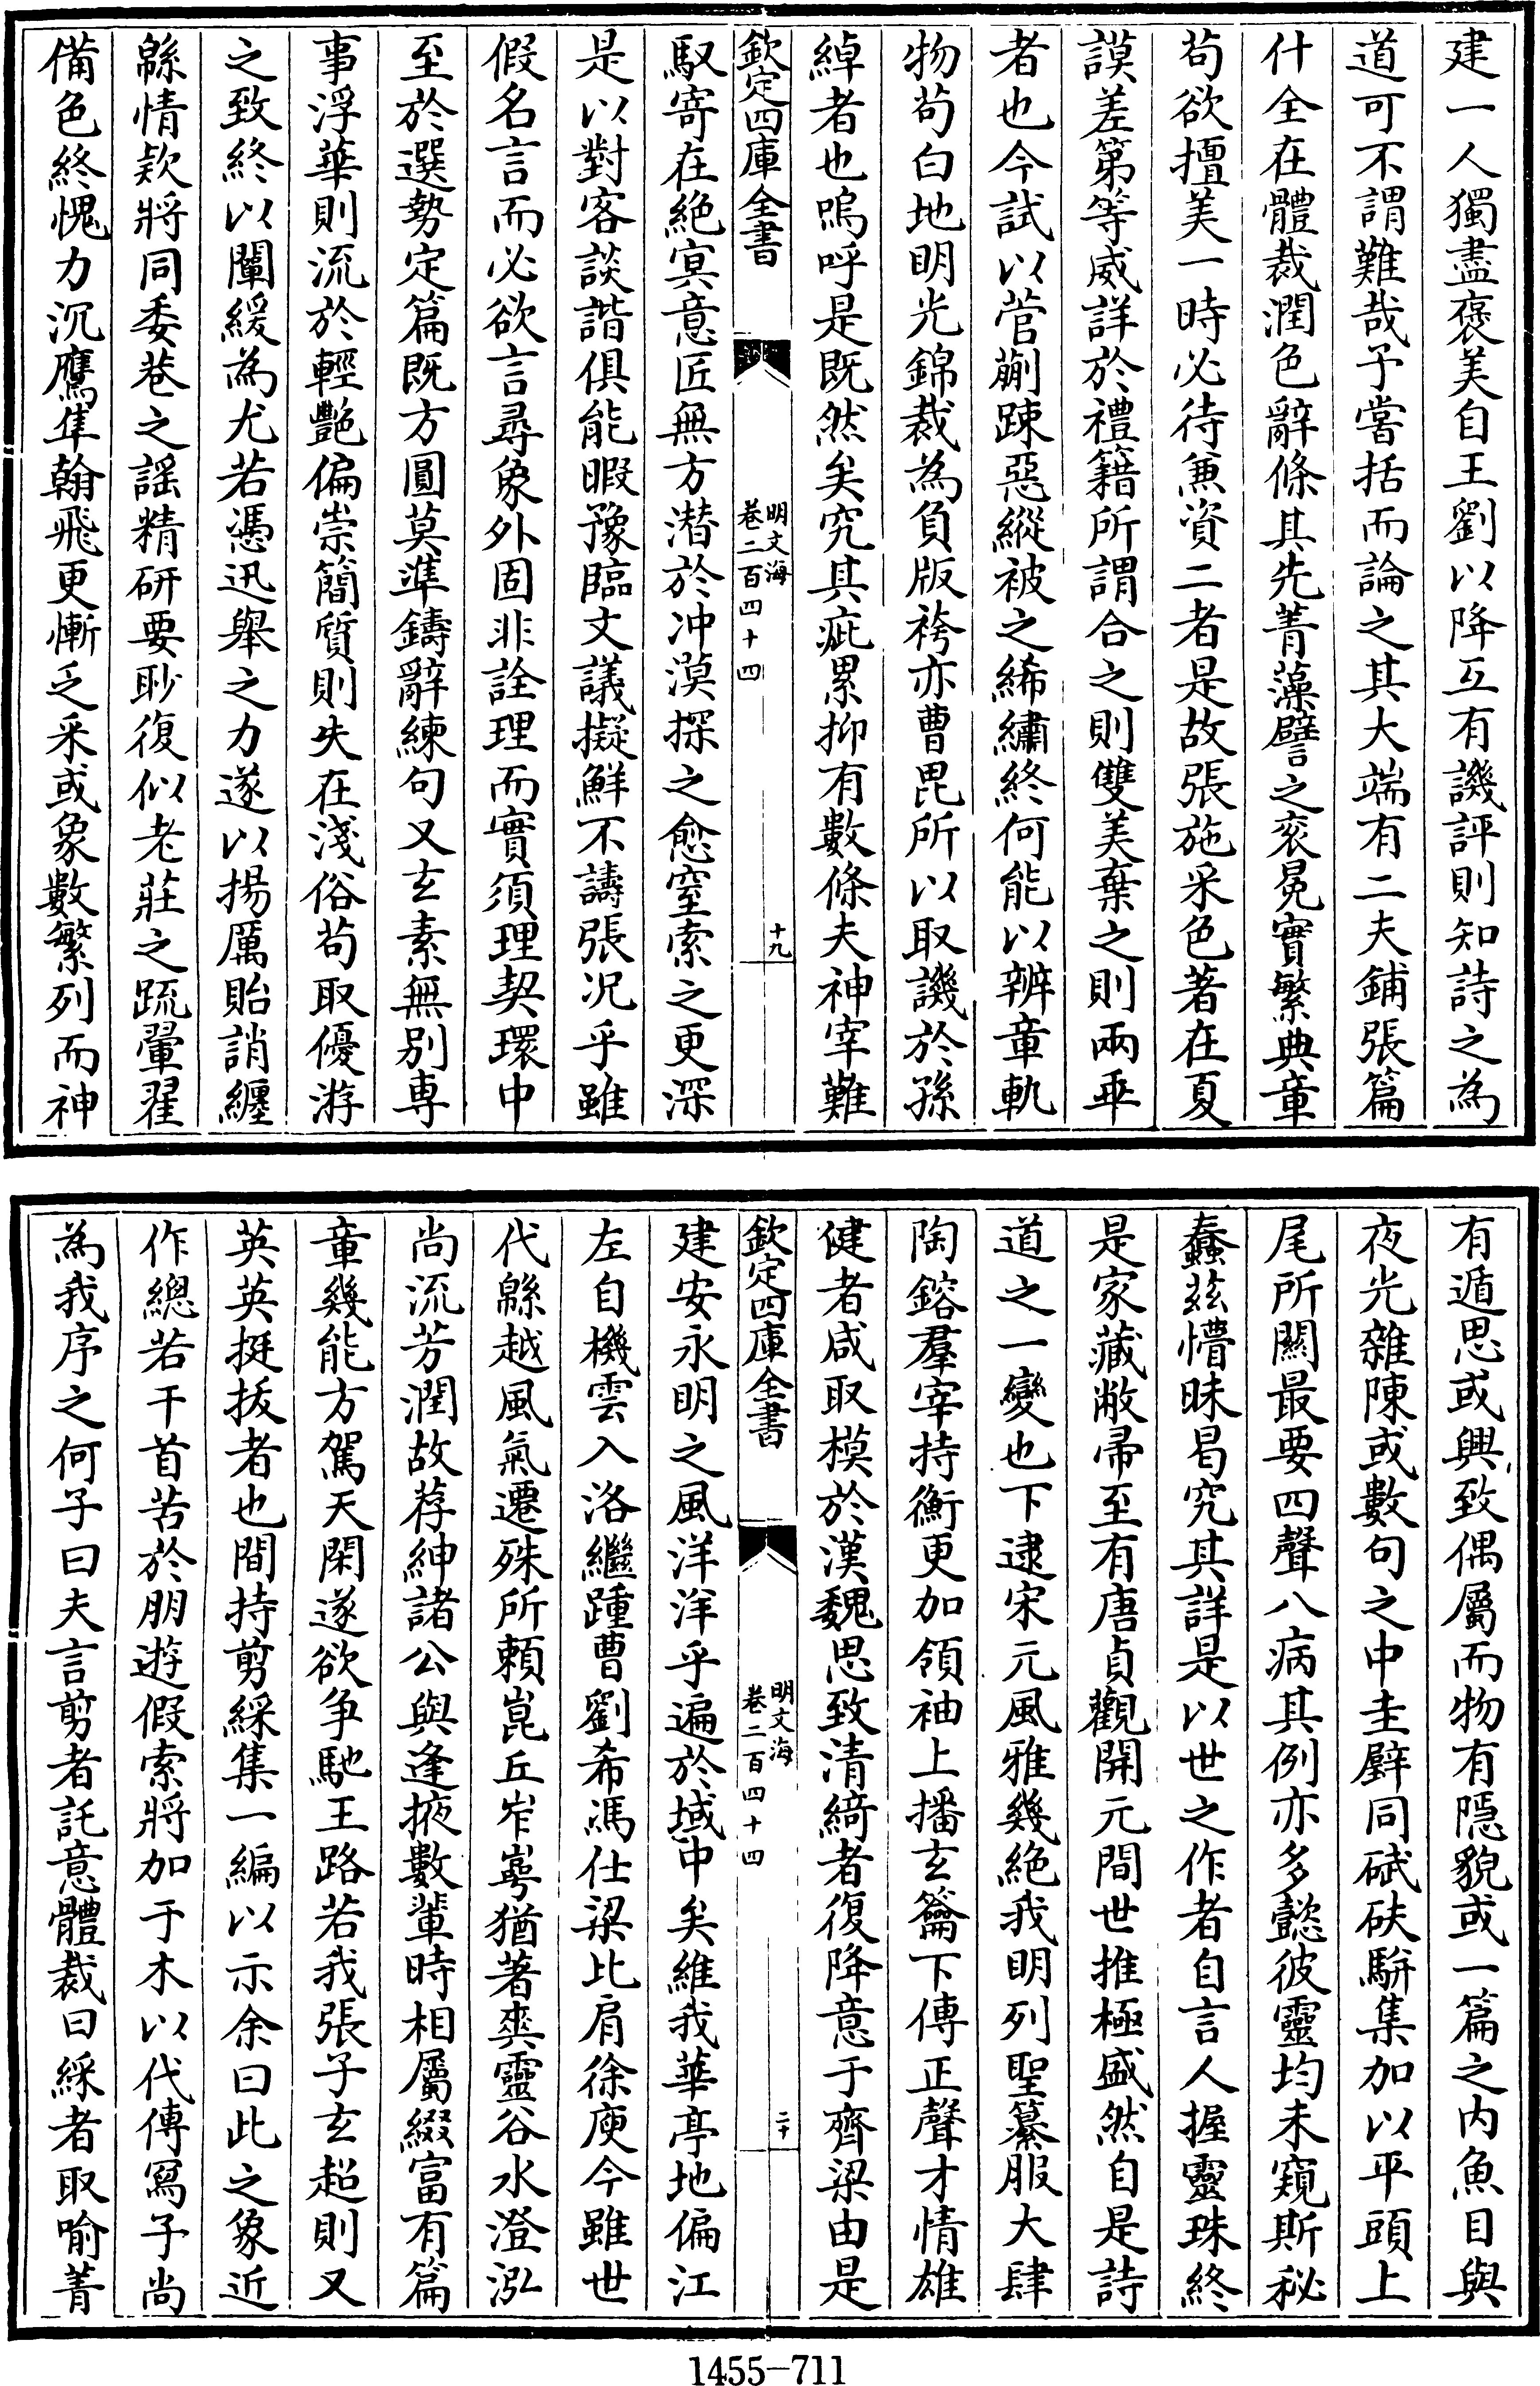 建一人獨盡褒美自王劉以降互有譏評則知詩之為
道可不謂難哉予嘗括而論之其大端有二夫鋪張篇
什全在體裁潤色辭條其先菁藻譬之衮冕實繁典章
苟欲擅美一時必待兼資二者是故張施采色著在夏
謨差第等威詳於禮籍所謂合之則雙美棄之則兩乖
者也今試以菅蒯踈惡縱被之絺繡終何能以辨章軌
物苟白地明光錦裁為負版袴亦曹毘所以取譏於孫
綽者也嗚呼是既然矣究其疵累抑有數條夫神宰難
欽定四庫全書
明文海
卷二百四十四
十九
馭寄在絕冥意匠無方潛於冲漠探之愈窒索之更深
是以對客談諧俱能暇豫臨文議擬鮮不譸張况乎雖
假名言而必欲言尋象外固非詮理而實須理契環中
至於選勢定篇既方圓莫準鑄辭練句又玄素無別專
事浮華則流於輕艷偏崇簡質則失在淺俗苟取優游
之致終以闡緩為尤若憑迅舉之力遂以揚厲貽誚纏
緜情欵將同委巷之謡精研要眇復似老莊之疏翬翟
備色終愧力沉鷹隼翰飛更慚乏采或象數繁列而神
有遁思或興致偶屬而物有隠貌或一篇之内魚目與
夜光雜陳或數句之中圭璧同碔砆駢集加以平頭上
尾所闗最要四聲八病其例亦多懿彼靈均未窺斯秘
蠢兹懵昧曷究其詳是以世之作者自言人握靈珠終
是家藏敝帚至有唐貞觀開元間世推極盛然自是詩
道之一變也下逮宋元風雅幾絕我明列聖纂服大肆
陶鎔羣宰持衡更加領袖上播玄籥下傳正聲才情雄
健者咸取模於漢魏思致清綺者復降意于齊梁由是
欽定四庫全書
明文海
卷二百四十四
二十
建安永明之風洋洋乎遍於域中矣維我華亭地偏江
左自機雲入洛繼踵曹劉希馮仕梁比肩徐庾今雖世
代緜越風氣遷殊所頼崑丘岝崿猶著爽靈谷水澄泓
尚流芳潤故荐紳諸公與逢掖數輩時相屬綴富有篇
章幾能方駕天閑遂欲争馳王路若我張子玄超則又
英英挺拔者也間持剪綵集一編以示余曰此之象近
作總若干首苦於朋遊假索將加于木以代傳寫子尚
為我序之何子曰夫言剪者託意體裁曰綵者取喻菁
1455—711